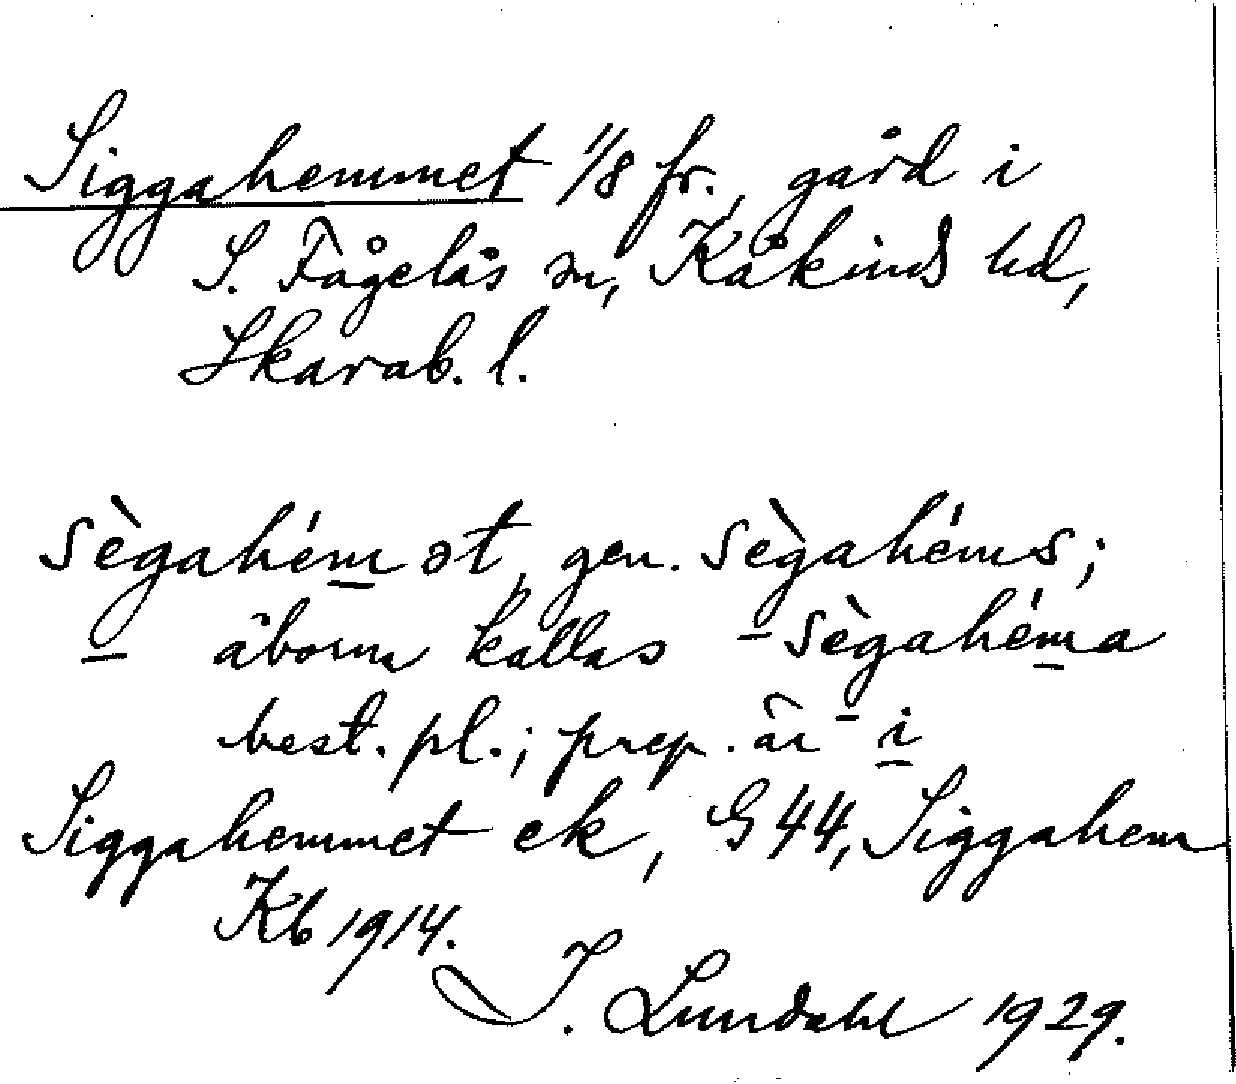 Siggahemmet 1/8 fr., gård i
S. Fågelås sn, Kåkinds hd,
Skarab. l.
sègahém ət, gen. sègahéms;
åborna kallas sègahéma
best. pl.; prep. är i
Siggahemmet ek, G 44, Siggahem
Kb 1914.
I. Lundahl 1929.